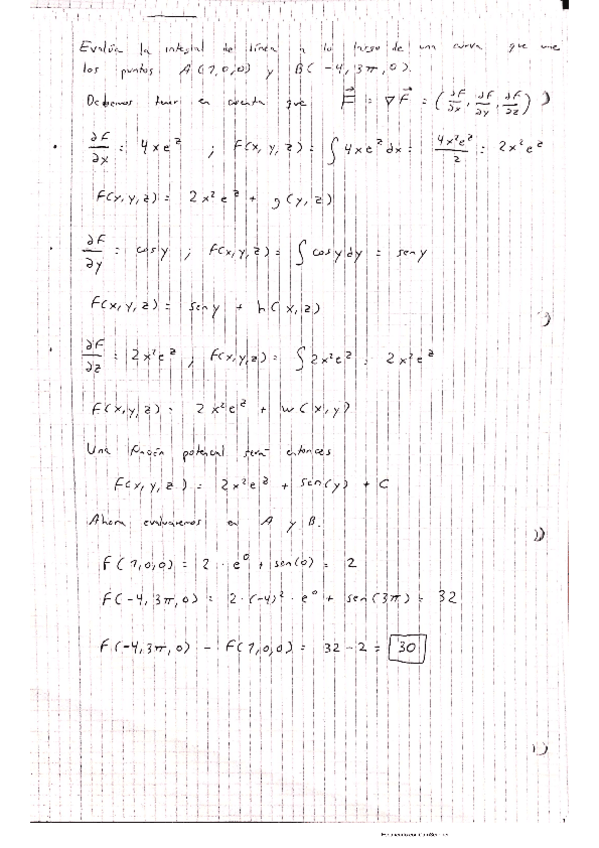 Evalúa la integral de línea a lo largo de una curva que une
los puntos A(1,0,0) y B(-4,3π,0).
Debemos tener en cuenta que F⃗ = ∇F⃗ = (∂F/∂x, ∂F/∂y, ∂F/∂z)
• ∂F/∂x = 4xe^z ; F(x,y,z) = ∫4xe^z dx = 4x²e^z/2 = 2x²e^z
F(x,y,z) = 2x²e^z + g(y,z)
• ∂F/∂y = cos y ; F(x,y,z) = ∫cos y dy = sen y
F(x,y,z) = sen y + h(x,z)
• ∂F/∂z = 2x²e^z ; F(x,y,z) = ∫2x²e^z = 2x²e^z
F(x,y,z) = 2x²e^z + w(x,y)
Una función potencial será entonces
F(x,y,z) = 2x²e^z + sen(y) + C
Ahora evaluaremos en A y B.
F(1,0,0) = 2 · e^0 + sen(0) = 2
F(-4,3π,0) = 2·(-4)² · e^0 + sen(3π) = 32
F(-4,3π,0) - F(1,0,0) = 32 - 2 = 30